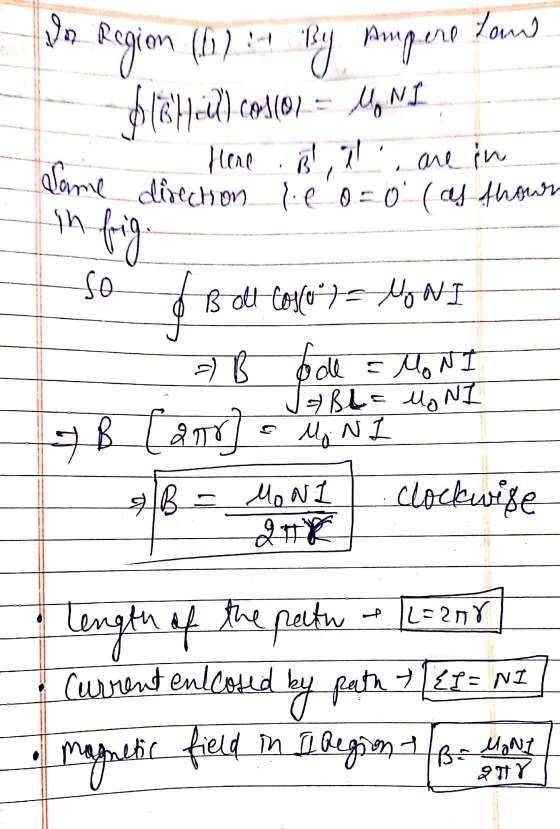 In Region (II) :→ By Ampere Law
∮|B⃗||dl⃗| cos(θ) = μ₀NI
Here . B⃗, l⃗ . are in
Same direction i.e θ=0° (as shown
in fig.
SO ∮ B dl cos(0°) = μ₀NI
⇒ B ∮dl = μ₀NI
⇒ BL = μ₀NI
⇒ B [2πr] = μ₀NI
⇒ B = μ₀NI / 2πr . clockwise
• length of the path → L=2πr
• Current enlcosed by path → ΣI = NI
• Magnetic field in II Region → B = μ₀NI / 2πr